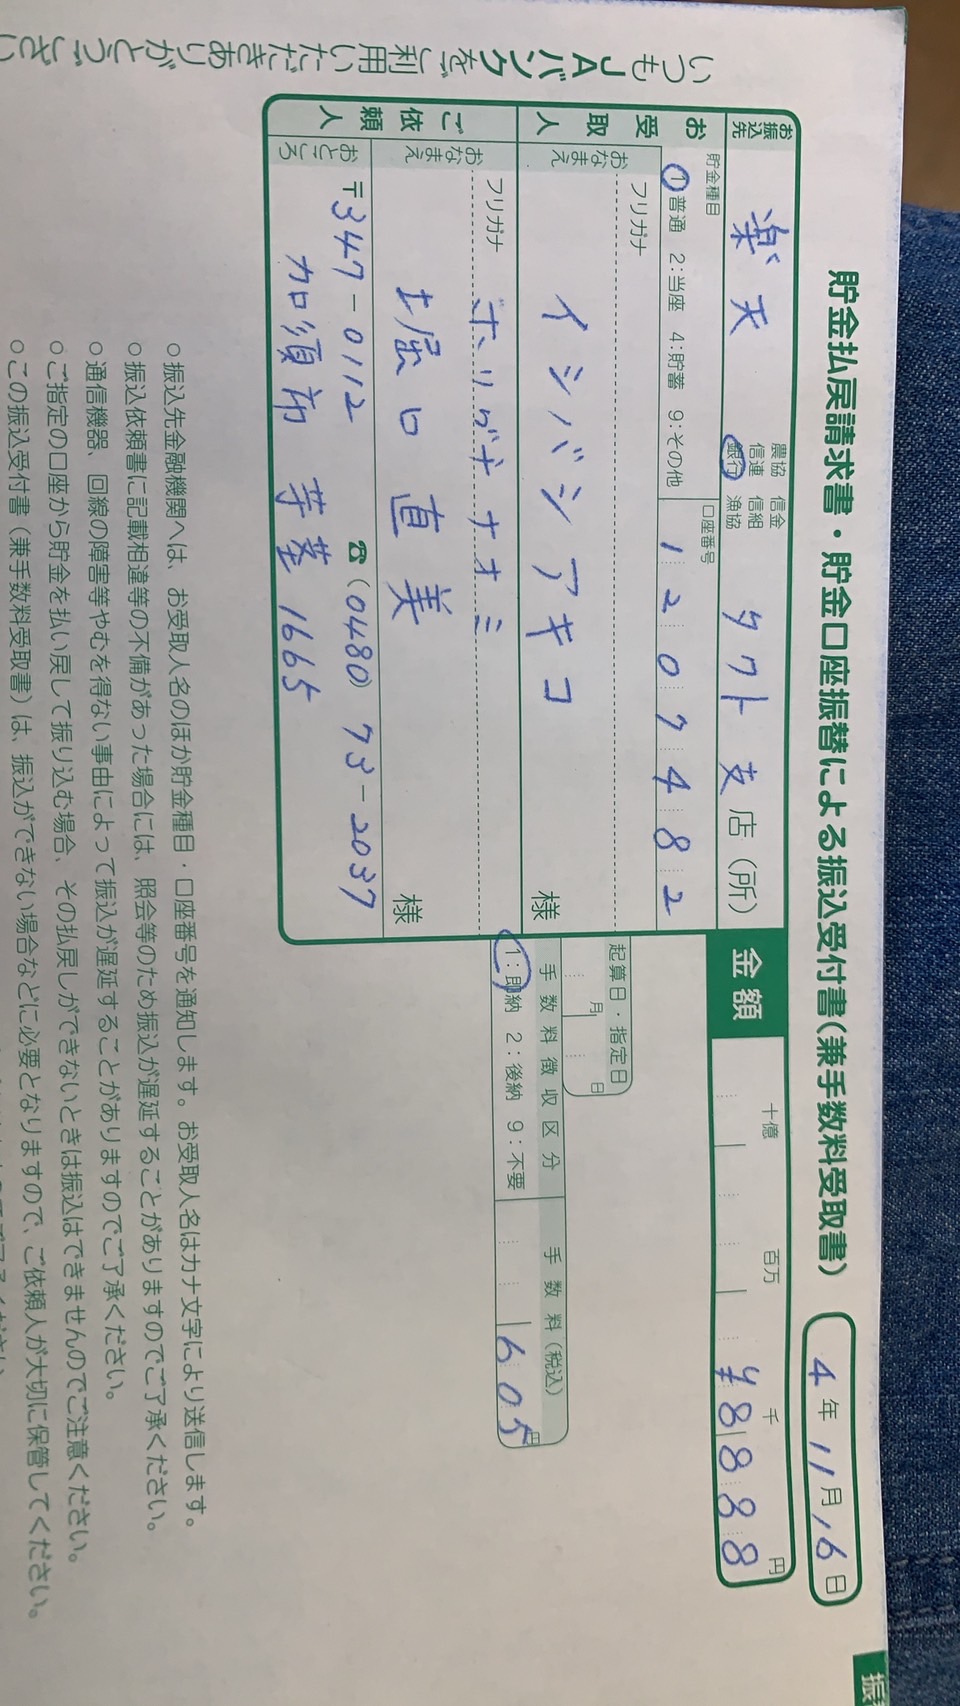 貯金払戻請求書・貯金口座振替による振込受付書(兼手数料受取書)
4年11月16日
お振込先
楽天
農協 信金
信連 信組
銀行 漁協
タクト支店(所)
金額
十億 百万 千 円
¥8888
お受取人
貯金種目
1:普通 2:当座 4:貯蓄 9:その他
口座番号
1207482
フリガナ
おなまえ
イシバシ アキコ
様
起算日・指定日
月 日
ご依頼人
フリガナ ホリグチ ナオミ
おなまえ
堀口 直美
様
手数料徴収区分
1:即納 2:後納 9:不要
手数料(税込)
605円
おところ
〒347-0112 ☎(0480)73-2037
加須市 芋茎 1665
○振込先金融機関へは、お受取人名のほか貯金種目・口座番号を通知します。お受取人名はカナ文字により送信します。
○振込依頼書に記載相違等の不備があった場合には、照会等のため振込が遅延することがありますのでご了承ください。
○通信機器、回線の障害等やむを得ない事由によって振込が遅延することがありますのでご了承ください。
○ご指定の口座から貯金を払い戻して振り込む場合、その払戻しができないときは振込はできませんのでご注意ください。
○この振込受付書(兼手数料受取書)は、振込ができない場合などに必要となりますので、ご依頼人が大切に保管してください。
いつもJAバンクをご利用いただきありがとうござい
振